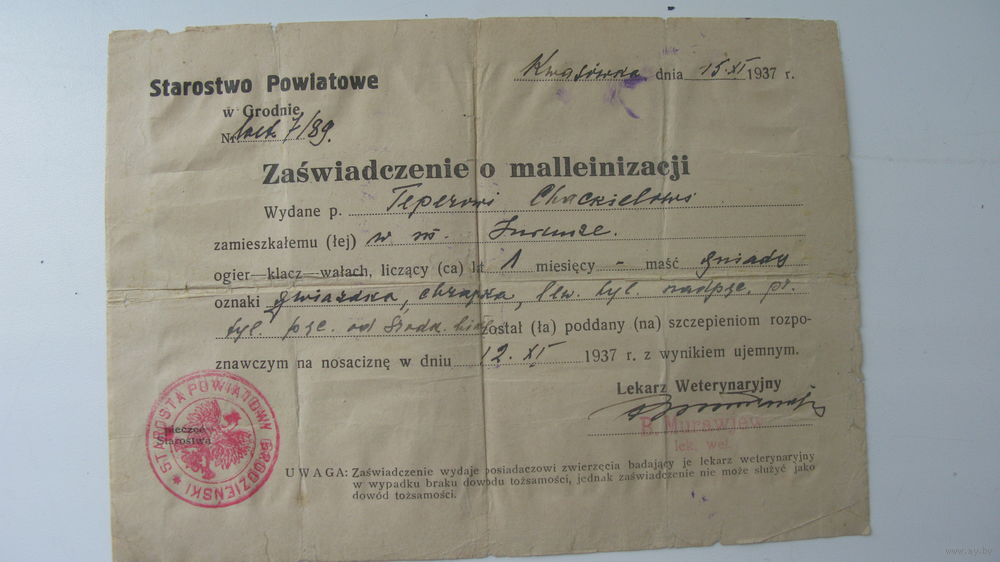 Starostwo Powiatowe
w Grodnie
Nr. 7/89.
Kwasówka dnia 15.XI 1937 r.
Zaświadczenie o malleinizacji
Wydane p. Teperowi Chackielowi
zamieszkałemu (łej) w m.
ogier—klacz—wałach, liczący (ca) lat 1 miesięcy - maść gniady
oznaki gwiazdka, chrapka, lew. tyl. nadpęc. pr.
tyl. pęc. od środk. został (ła) poddany (na) szczepieniom rozpo-
znawczym na nosaciznę w dniu 12. XI 1937 r. z wynikiem ujemnym.
Lekarz Weterynaryjny
B. Murawiew
lek. wet.
Pieczęć
Starostwa
STAROSTA POWIATOWY GRODZIEŃSKI
UWAGA: Zaświadczenie wydaje posiadaczowi zwierzęcia badający je lekarz weterynaryjny
w wypadku braku dowodu tożsamości, jednak zaświadczenie nie może służyć jako
dowód tożsamości.
www.ay.by